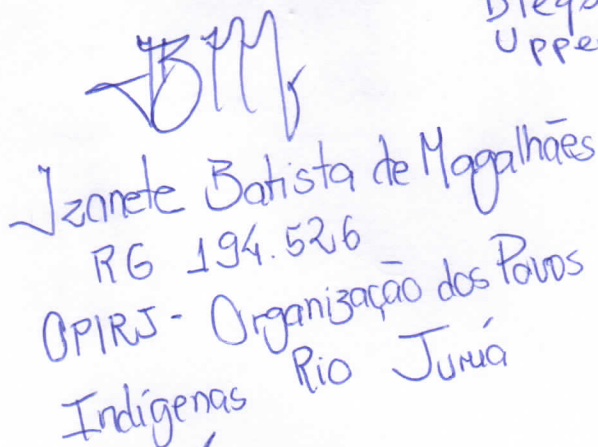 JBM
Izanete Batista de Magalhães
RG 194.526
OPIRJ - Organização dos Povos
Indígenas Rio Juruá